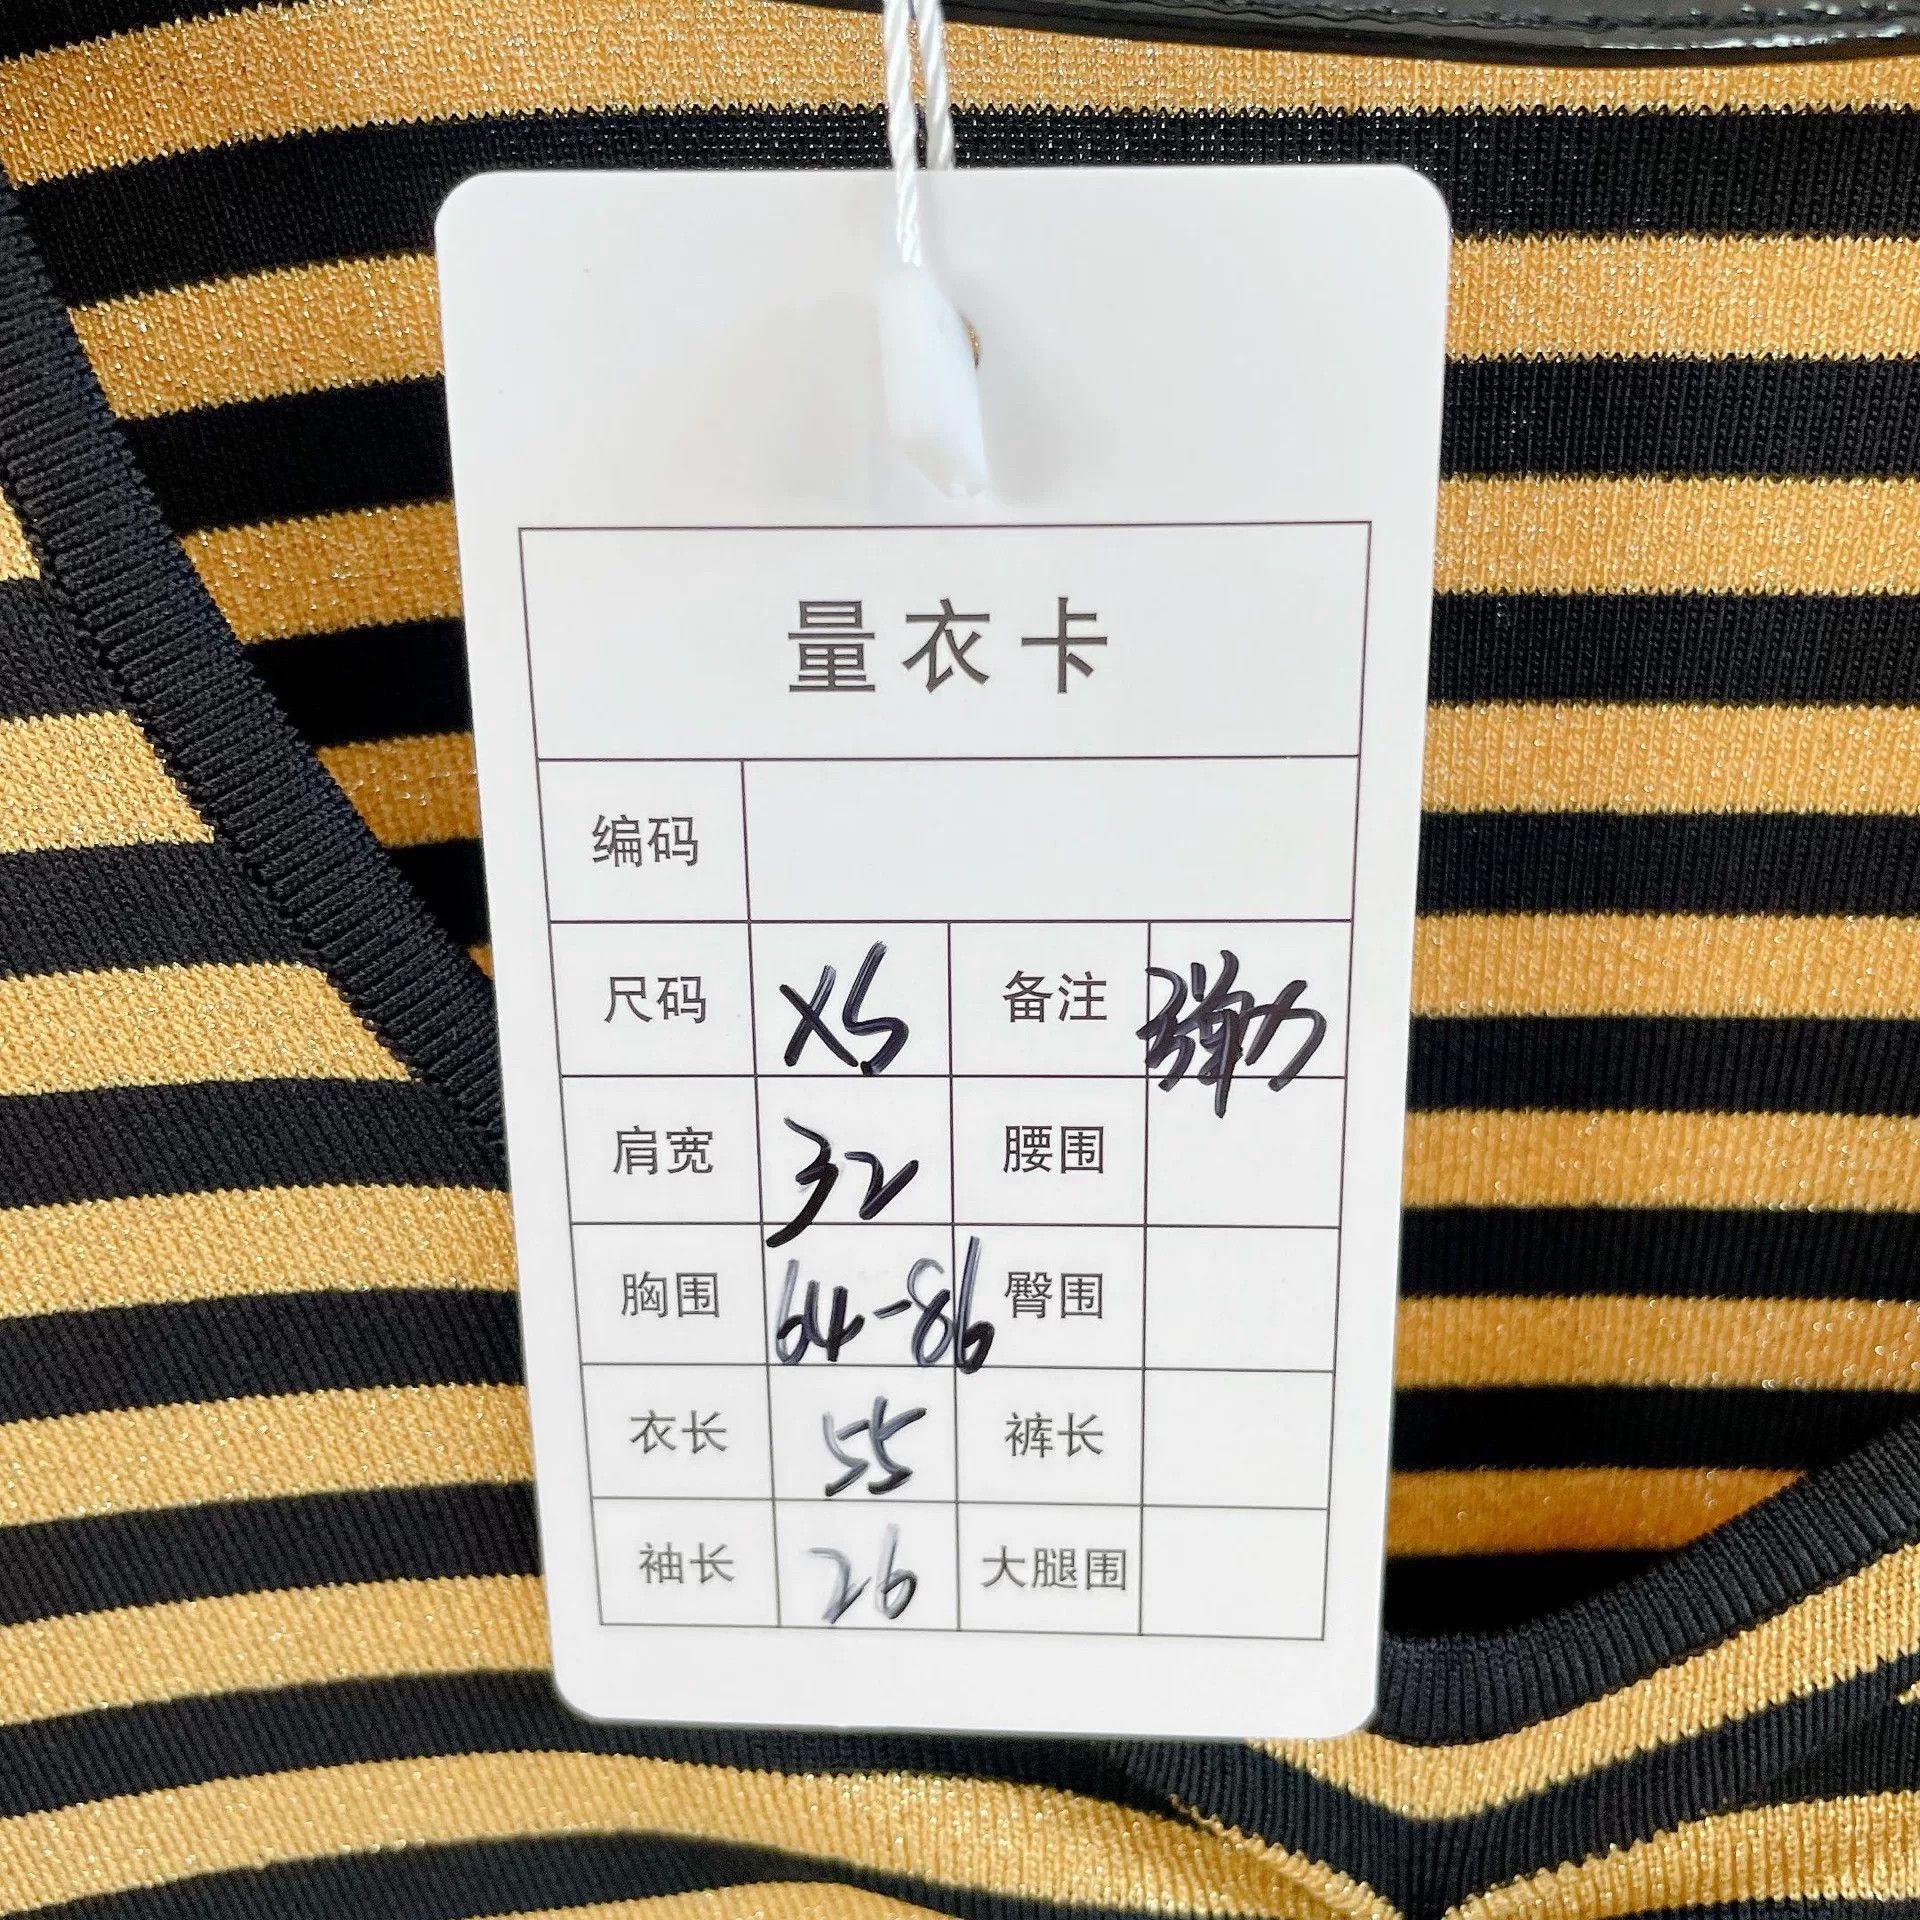 量衣卡
编码
尺码 XS 备注 弹力
肩宽 32 腰围
胸围 64-86 臀围
衣长 55 裤长
袖长 26 大腿围